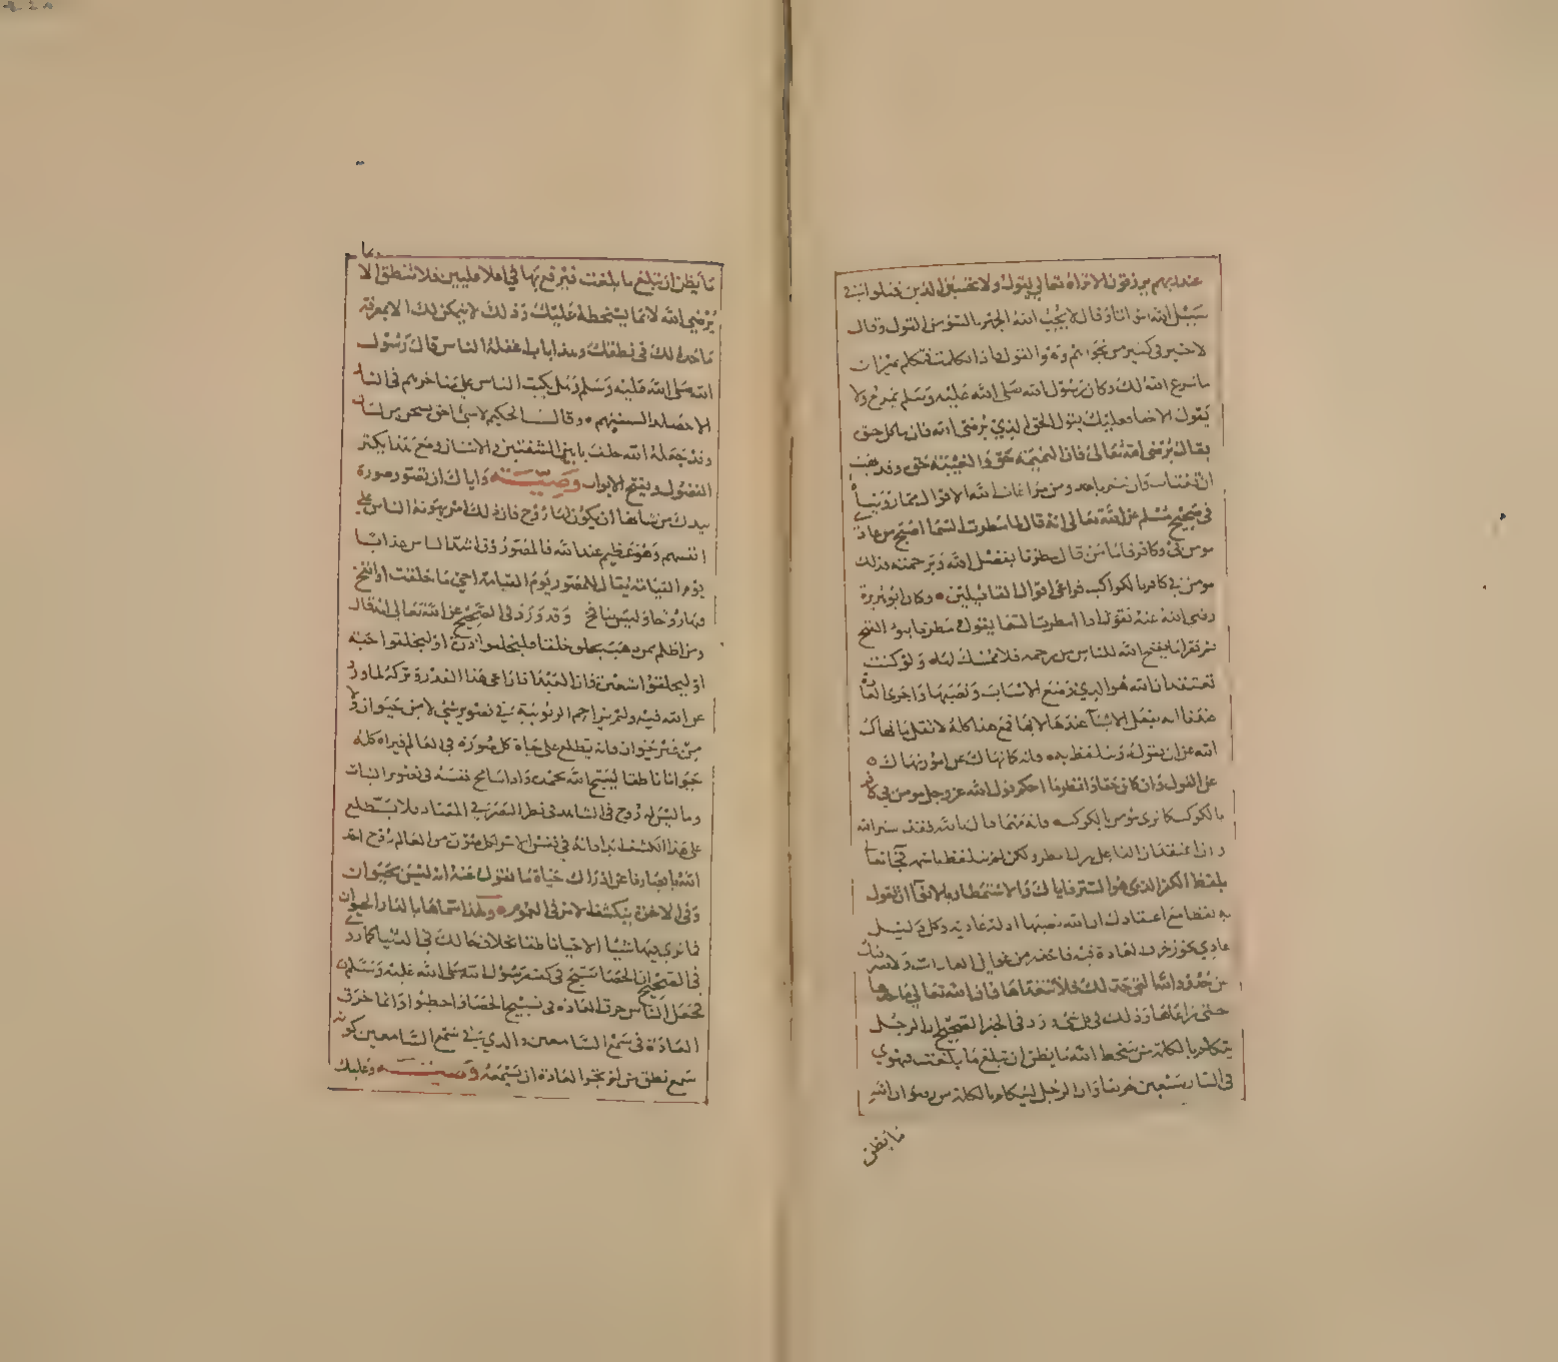 عند ربهم يرزقون الا تراه تعالى يقول ولا تحسبن الذين قتلوا في
سبيل الله امواتا وقال لا يحب الله الجهر بالسوء من القول وقال
لا خير في كثير من نجواهم وهو القول فاذا تكلمت فتكلم بميزان
ما شرع الله لك وكان رسول الله صلى الله عليه وسلم يمزح ولا
يقول الا حقا فعليك بقول الحق الذي يرضي الله فان ما كل حق
يقال يرضي الله تعالى فان النميمة حق والغيبة حق وقد
ان تغتاب وان تنم باحد ومن مراعات الله الاقوال ما رويناه
في صحيح مسلم عن الله تعالى انه قال لما مطرت السماء اصبح من عبادي
مومن بي وكافر فاما من قال مطرنا بفضل الله وبرحمته فذلك
مومن بي كافر بالكواكب فراعى اقوال القائلين وكان ابو هريرة
رضي الله عنه يقول اذا مطرت السماء يقول مطرنا بنوء الفتح
ثم يقرا ما يفتح الله للناس من رحمة فلا ممسك لها ولو كنت
تعتقد ان الله هو الذي وضع الاسباب ونصبها واجرى العادة
عندنا انه يفعل الاشياء عندها لا بها فمع هذا كله لا تقل ما نهاك
الله عز ان تقوله وتتلفظ به فانه كما نهاك عن امور نهاك
عن القول وان كان حقا وانظر ما احكم قول الله عز وجل مومن بي كافر
بالكوكب كافر بي مومن بالكوكب فانه مهما قال بفضل الله فقد ستر الله
وان اعتقد ان الفاعل هو الله ولكن لم يتلفظ باسمه فجا تعالى
بلفظ الكفر الذي هو الستر فاياك والاستمطار بالانواء ان تقول
به لفظا مع اعتقادك ان الله نصبها ادلة عادية وكل دليل
عادي يجوز خرق العادة فيه فاحذر من غوائل العادات ولا تصرفنك
عن حدود الله التي حد لك فلا تتعداها فان الله تعالى ما حدها
حتى راعاها وذلك في كل شيء ورد في الخبر الصحيح ان الرجل
يتكلم بالكلمة من سخط الله ما يظن ان تبلغ ما بلغت فيهوي
في النار سبعين خريفا وان الرجل ليتكلم بالكلمة من رضوان الله
ما يظن
ما يظن ان تبلغ ما بلغت فيرفع بها في اعلا عليين فلا تنطق الا بما
يرضي الله لا بما يسخطه عليك وذلك لا يتمكن لك الا بمعرفة
ما حده لك في نطقك وهذا باب اغفله الناس قال رسول
الله صلى الله عليه وسلم وهل يكب الناس على مناخرهم في النار
الا حصائد السنتهم وقال الحكيم لا شيء احق بسجن من لسان
وقد جعله الله خلف بابين الشفتين والاسنان ومع هذا يكثر
الفضول ويفتح الابواب وصية واياك ان تصور صورة
بيدك من شانها ان يكون لها روح فان ذلك امر يهونه الناس على
انفسهم وهو عظيم عند الله فالمصورون اشد الناس عذابا
يوم القيامة يقال للمصور يوم القيامة احي ما خلقت او انفخ
فيها روحا وليس بنافخ وقد ورد في الصحيح عن الله تعالى انه قال
ومن اظلم ممن ذهب يخلق خلقا كخلقي فليخلقوا ذرة او ليخلقوا حبة
او ليخلقوا شعيرة فان العبد اذا راعى هذا القدر وتركه لما ورد
عن الله فيه ولم يزاحم الربوبية في تصوير شيء لا من حيوان ولا
من غير حيوان فانه يطلع على حياة كل صورة في العالم فيراه كله
حيوانا ناطقا يسبح الله بحمده واذا سامح نفسه في تصوير النبات
وما ليس له روح في الشاهد في نظر البصر في المعتاد فلا يطلع
على هذا الكشف ابدا فانه في نفس الامر لكل صورة من العالم روح اخذ
الله بابصارنا عن ادراك حياة ما نقول عنه انه ليس بحيوان
وفي الاخرة ينكشف الامر في العموم ولهذا سماها بالدار الحيوان
فما ترى فيها شيئا الا حيا ناطقا بخلاف حالك في الدنيا كما روي
في الصحيح ان الحصا سبح في كف رسول الله صلى الله عليه وسلم
فجعل الناس خرق العادة في تسبيح الحصا واخطوا وانما خرق
العادة في سمع السامعين والذي في سمع السامعين كونه
سمع نطق من لم تجر العادة ان يسمعه وصية وعليك